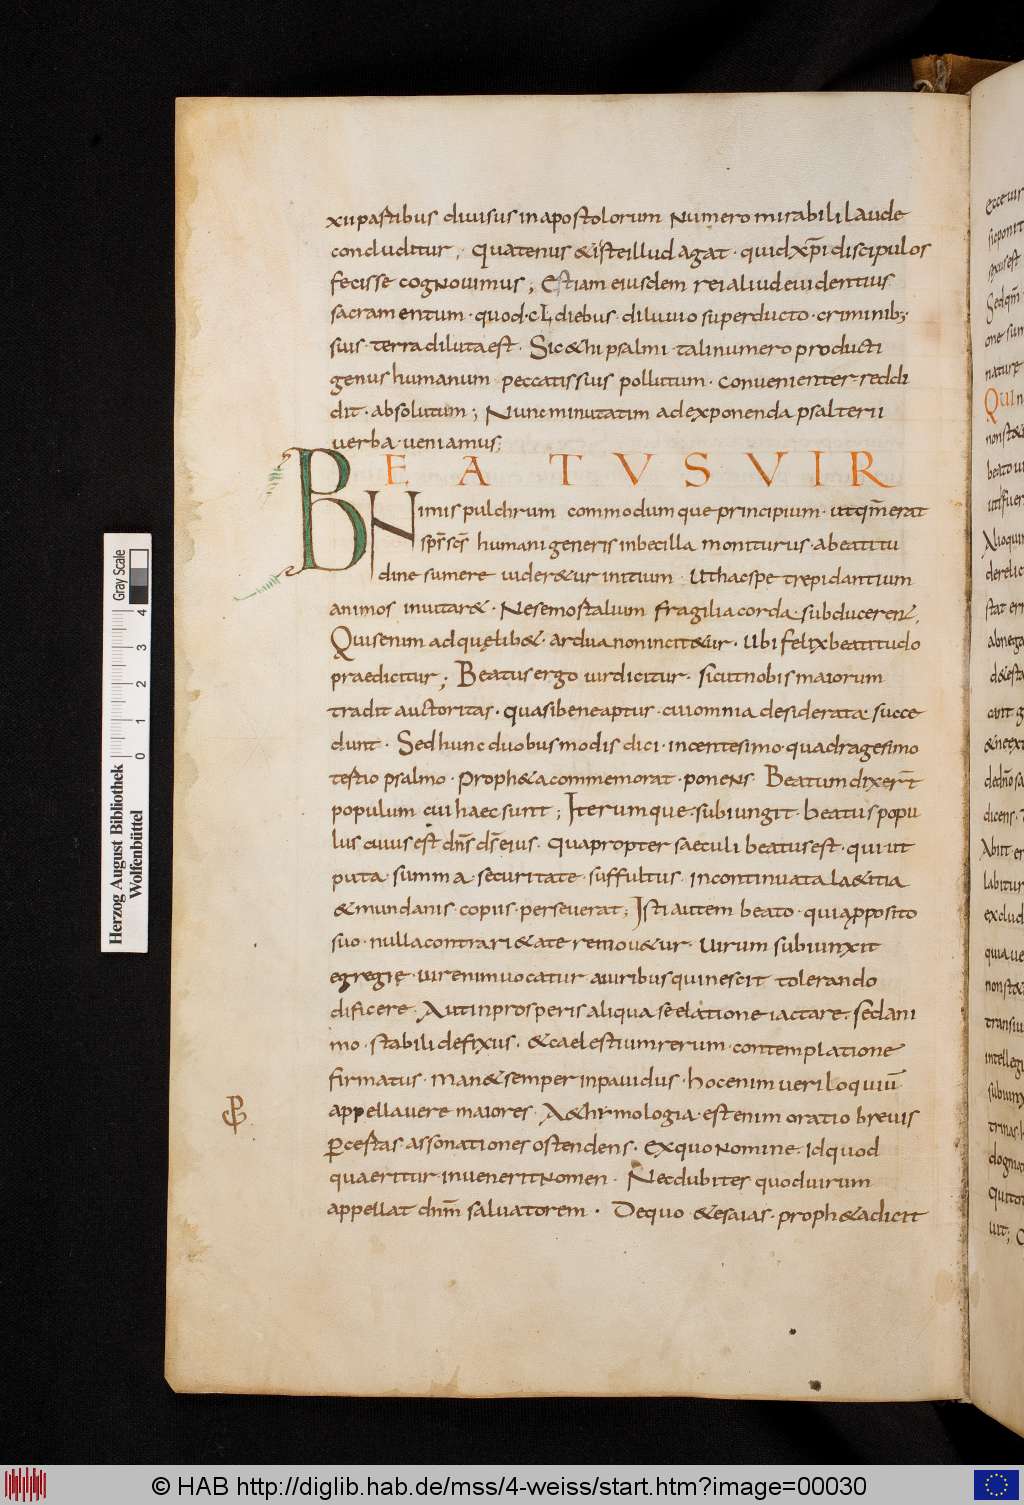 xu pastibus diuisus in apostolorum Numero mirabili laude
concluditur; Quatenus & iste illud agat · quid xp̄i discipulos
fecisse cogNouimus; Estiam eiusdem rei aliud euidentius
sacramentum · quod · cL diebus · diluuio superducto · criminib;
suis · terra diluta est · Sic & hi psalmi tali numero producti
genus humanum peccatis suis pollutum · conuenienter reddi
dit · absolutum; Nunc minutatim ad exponenda psalterii
uerba · ueniamus;
BEATUS VIR
Nimis pulchrum commodumque principium · ut qm̄ erat
sp̄s sc̄s humani generis inbecilla moniturus · a beatitu
dine sumere uider&ur initium · Ut hac spe trepidantium
animos inuitar& · Ne se mostalium fragilia corda · subducerent,
Quis enim ad quęlib& · ardua non incit&ur · Ubi felix beatitudo
praedicitur; Beatus ergo uir dicitur · sicut nobis maiorum
tradit auctoritas · quasi bene aptur · cui omnia desiderata succe
dunt · Sed hunc duobus modis dici · in centesimo quadragesimo
testio psalmo · Proph&a commemorat · ponens Beatum dixer̄t
populum cui haec sunt; Iterumque · subiungit · beatus popu
lus cuius est dn̄s ds̄ eius · Quapropter saeculi beatus est · qui ut
puta · summa · securitate · suffultus · in continuata la&itia
& mundanis · copiis · perseuerat; Isti autem beato · qui apposito
suo · nulla contrari&ate remou&ur · Uirum subiunxit
egregie · uir enim uocatur a uiribus qui nescit tolerando
dificere · Aut in prosperis aliqua se elatione iactare · sed ani
mo · stabili defixus · & caelestium rerum · contemplatione
firmatus · man& semper inpauidus · hoc enim ueriloquiū
appellauere maiores · A&hymologia · est enim oratio breuis
per cestas · assonationes ostendens · ex quo Nomine · id quod
quaeritur inuenerit Nomen · Nec dubites quod uirum
appellat dn̄m salvatorem · De quo & esaias · proph&a dicit
Qui
Herzog August Bibliothek
Wolfenbüttel
0 1 2 3 4
Gray Scale
© HAB http://diglib.hab.de/mss/4-weiss/start.htm?image=00030